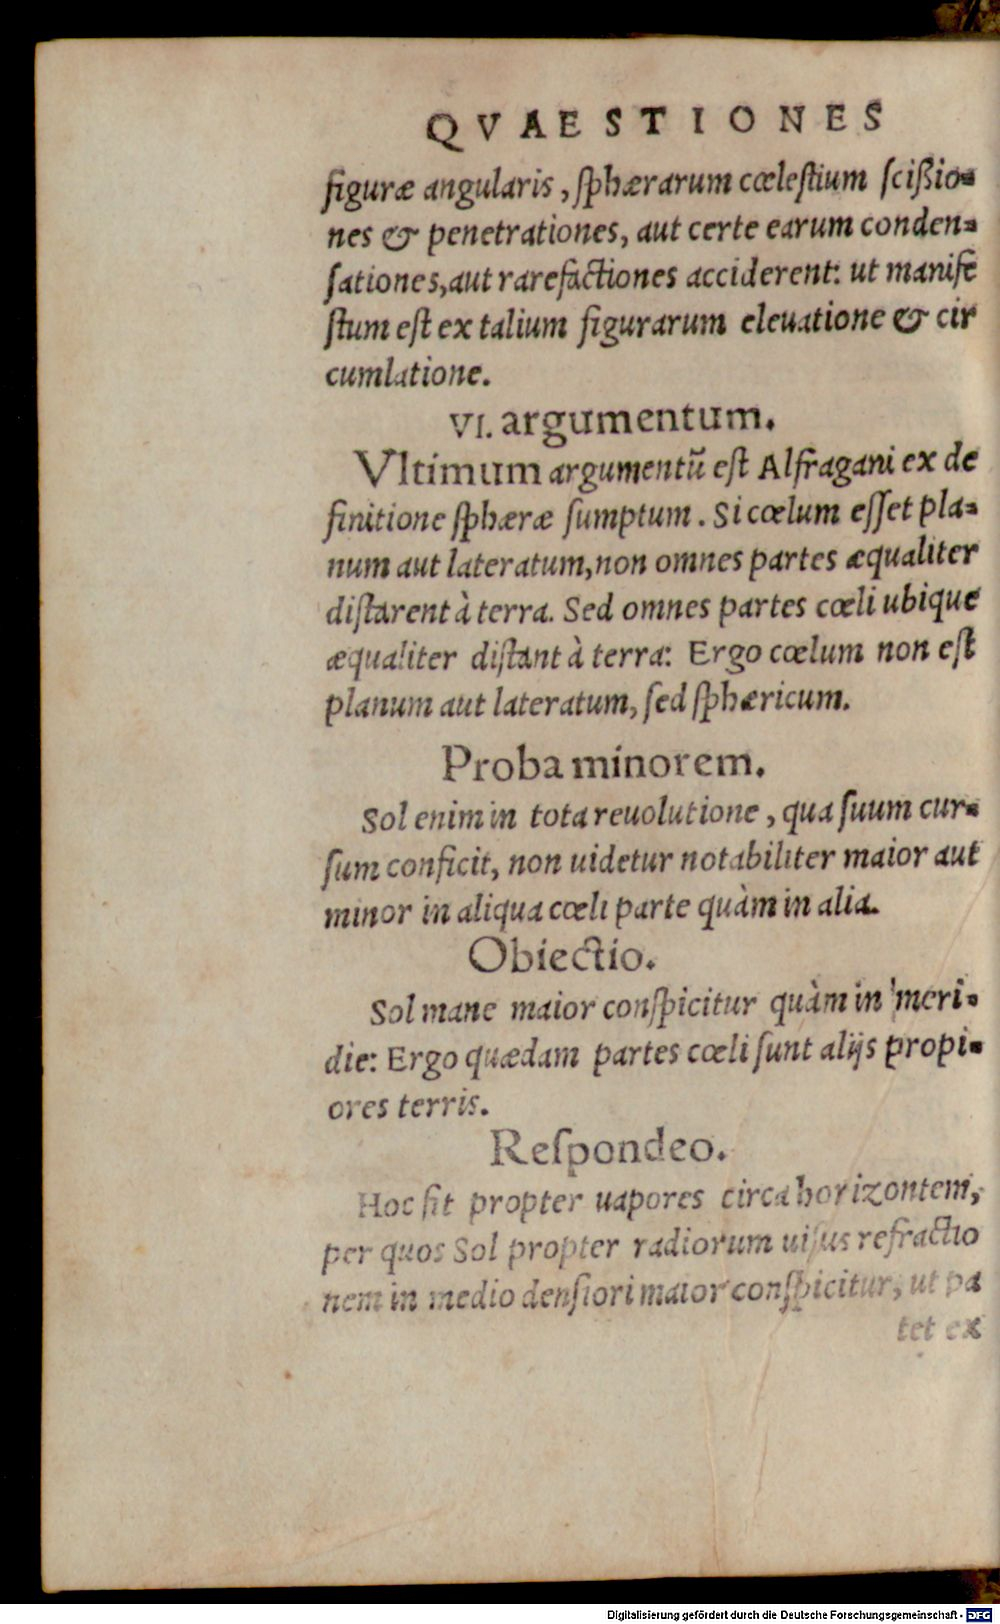 QVAESTIONES
figuræ angularis, ſphærarum cœleſtium ſcißio-
nes & penetrationes, aut certe earum conden-
ſationes, aut rarefactiones acciderent: ut manife
ſtum eſt ex talium figurarum eleuatione & cir
cumlatione.
VI. argumentum.
Vltimum argumentũ eſt Alfragani ex de
finitione ſphæræ ſumptum. Si cœlum eſſet pla-
num aut lateratum, non omnes partes æqualiter
diſtarent à terra. Sed omnes partes cœli ubique
æqualiter diſtant à terra: Ergo cœlum non eſt
planum aut lateratum, ſed ſphæricum.
Proba minorem.
Sol enim in tota reuolutione, qua ſuum cur-
ſum conficit, non uidetur notabiliter maior aut
minor in aliqua cœli parte quàm in alia.
Obiectio.
Sol mane maior conſpicitur quàm in meri-
die: Ergo quædam partes cœli ſunt alijs propi-
ores terris.
Reſpondeo.
Hoc fit propter uapores circa horizontem,
per quos Sol propter radiorum uiſus refractio
nem in medio denſiori maior conſpicitur, ut pa
tet ex
Digitalisierung gefördert durch die Deutsche Forschungsgemeinschaft - DFG